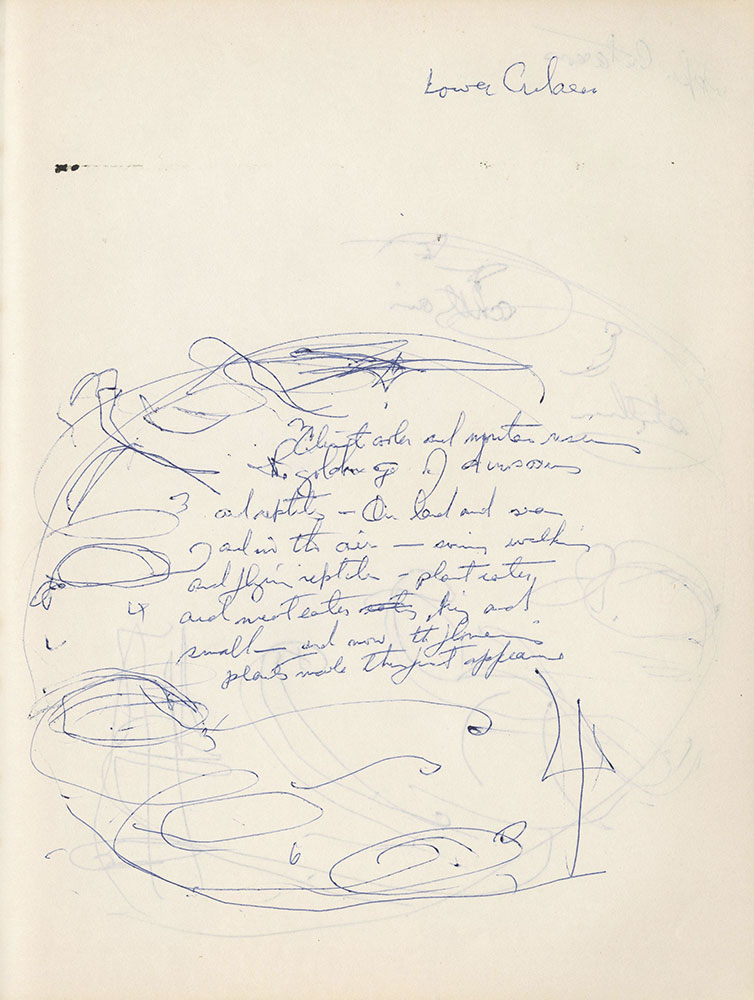 Lower Cretaceous
Climate cooler and mountains rising
the golden age of dinosaurs
3 and reptiles – On land and sea
and in the air – swimming walking
and flying reptiles – plant eaters
4 and meat eaters, big and
small – and now the flowering
plants made their first appearance
6